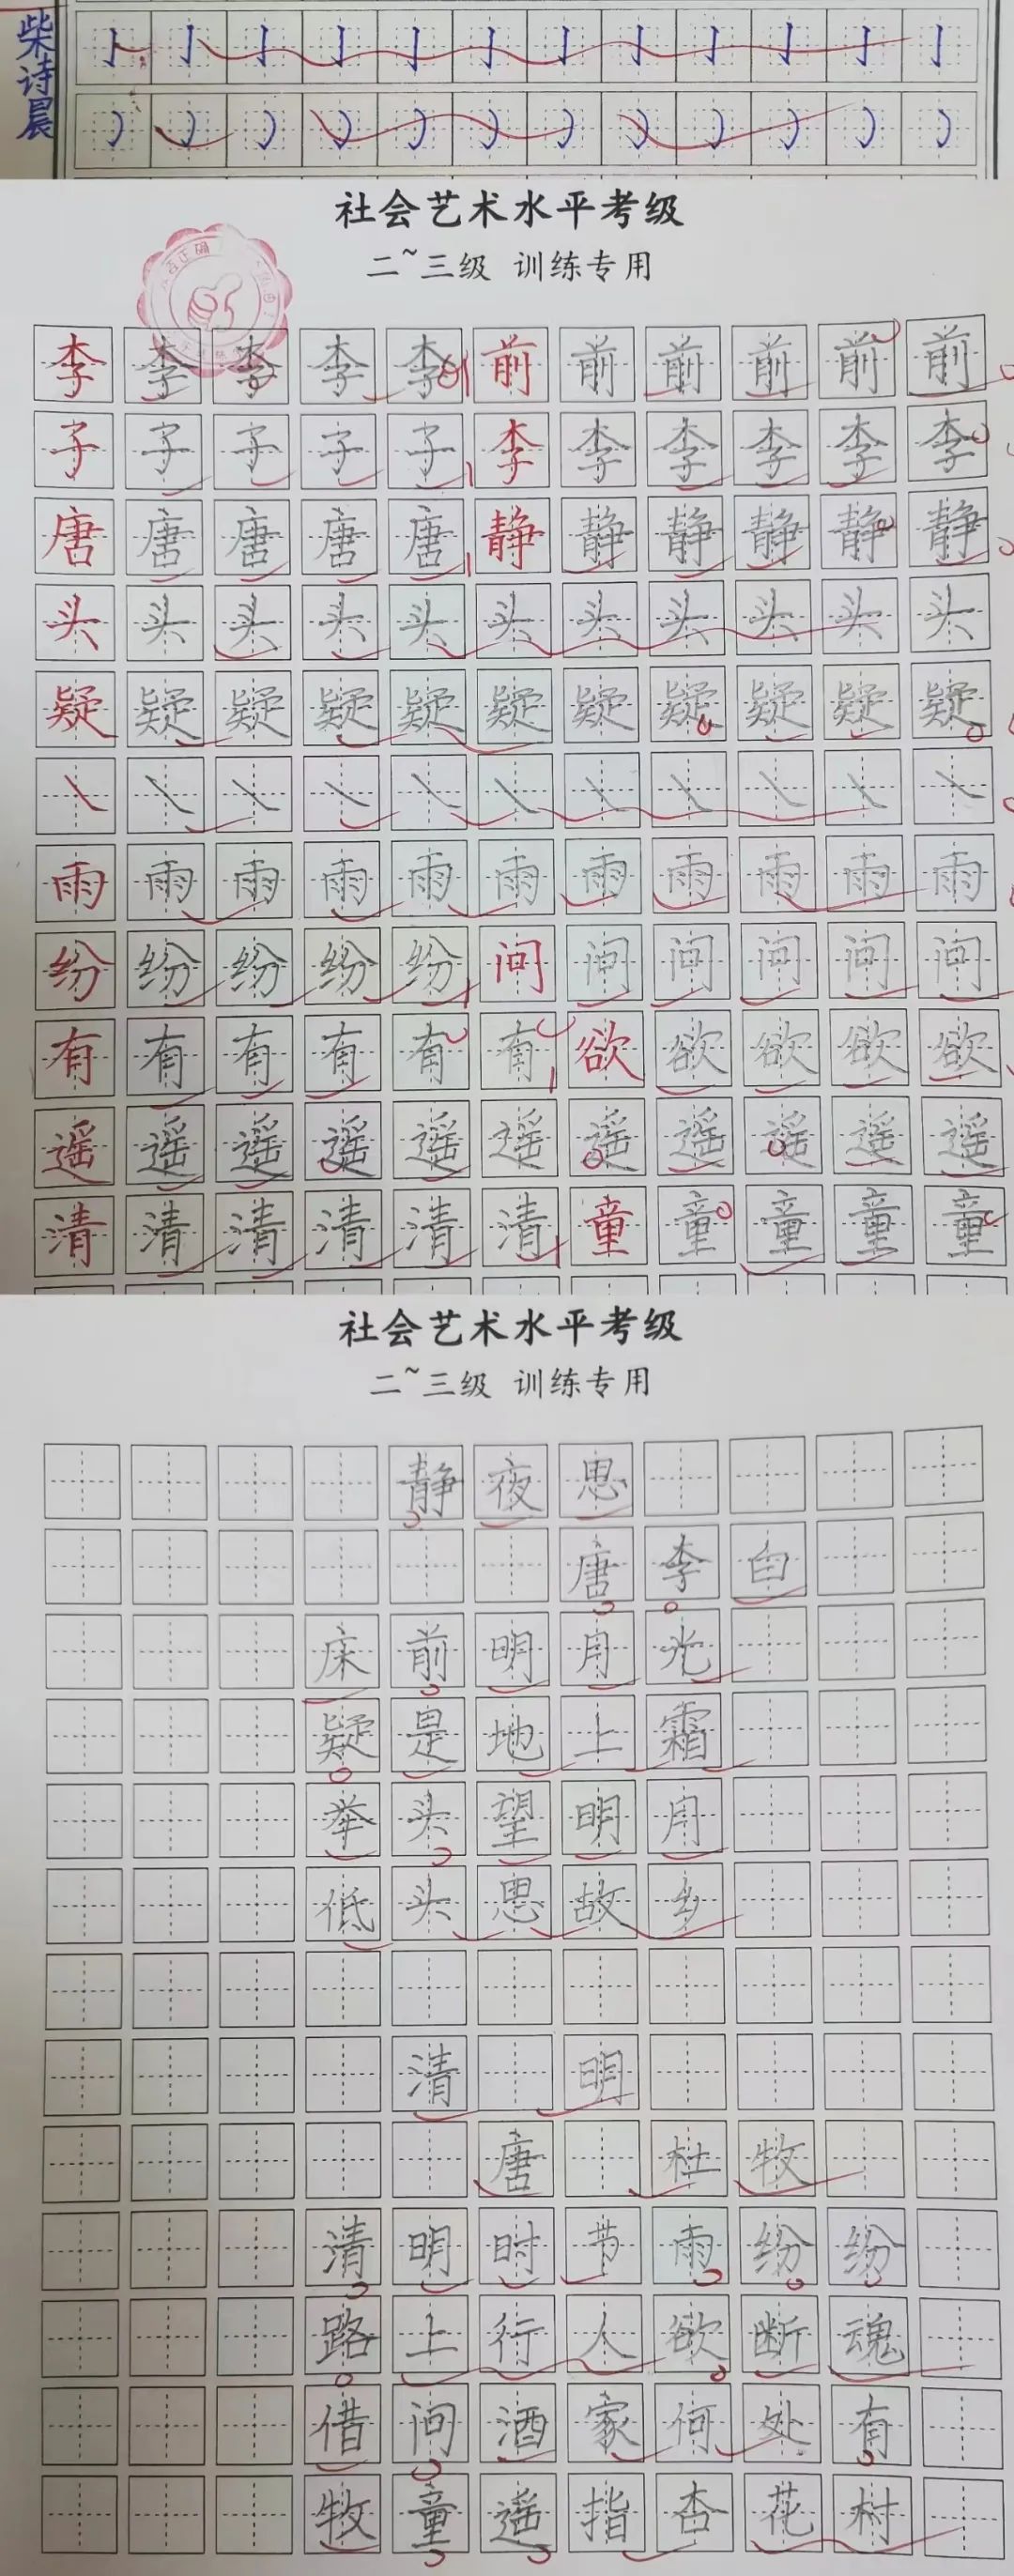 柴诗晨
社会艺术水平考级
二~三级 训练专用
李李李李李前前前前前前
子子子子子李李李李李李
唐唐唐唐唐静静静静静静
头头头头头头头头头头头
疑疑疑疑疑疑疑疑疑疑疑
雨雨雨雨雨雨雨雨雨雨雨
纷纷纷纷纷问问问问问问
有有有有有有欲欲欲欲欲
遥遥遥遥遥遥遥遥遥遥遥
清清清清清清童童童童童
社会艺术水平考级
二~三级 训练专用
静夜思
唐李白
床前明月光
疑是地上霜
举头望明月
低头思故乡
清 明
唐 杜牧
清明时节雨纷纷
路上行人欲断魂
借问酒家何处有
牧童遥指杏花村